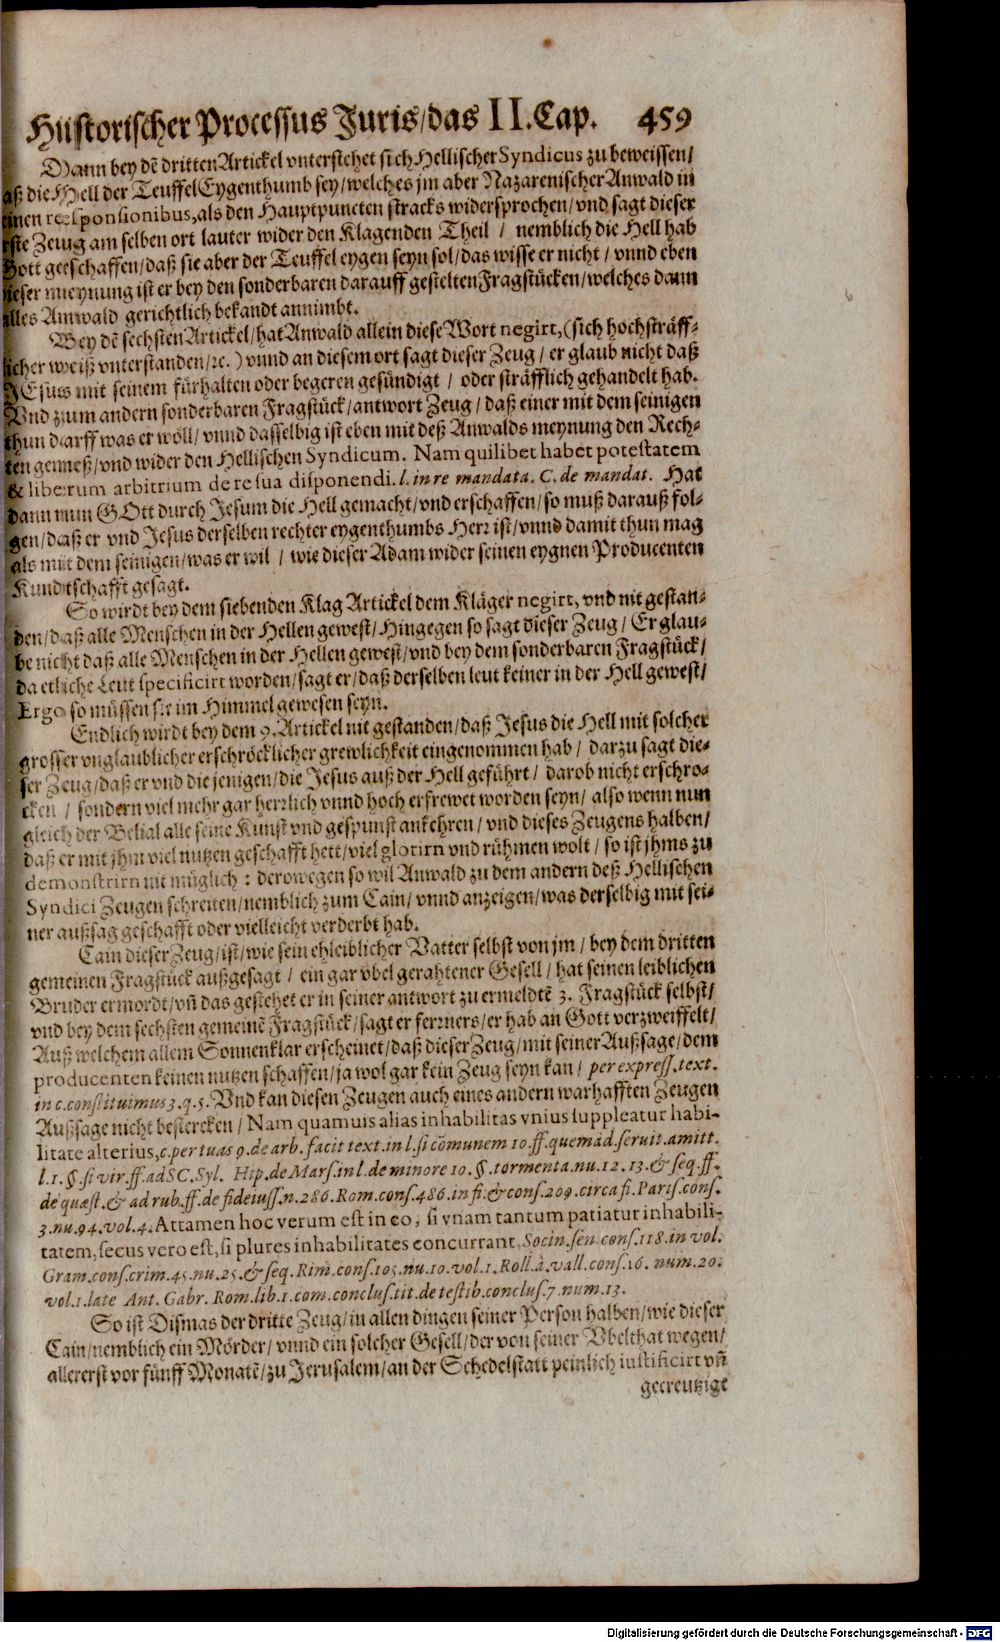 Historischer Processus Juris/das II. Cap. 459
Dann bey dẽ dritten Artickel vnterstehet sich Hellischer Syndicus zu beweissen/
aß die Hell der Teuffel Eygenthumb sey/welches jm aber Nazarenischer Anwald in
einen responsionibus, als den Hauptpuncten stracks widersprochen/vnd sagt dieser
rste Zeug am selben ort lauter wider den Klagenden Theil / nemblich die Hell hab
Gott geschaffen/daß sie aber der Teuffel eygen seyn sol/das wisse er nicht / vnnd eben
ieser meynung ist er bey den sonderbaren darauff gestelten Fragstücken/welches dann
alles Anwald gerichtlich bekandt annimbt.
Bey dẽ sechsten Artickel/hat Anwald allein diese Wort negirt, (sich hochsträff-
licher weiß vnterstanden/ꝛc.) vnnd an diesem ort sagt dieser Zeug / er glaub nicht daß
JEsus mit seinem fürhalten oder begeren gesündigt / oder sträfflich gehandelt hab.
Vnd zum andern sonderbaren Fragstück/antwort Zeug / daß einer mit dem seinigen
thun darff was er wöll/ vnnd dasselbig ist eben mit deß Anwalds meynung den Rech-
ten gemeß/vnd wider den Hellischen Syndicum. Nam quilibet habet potestatem
& liberum arbitrium de re sua disponendi. l. in re mandata. C. de mandat. Hat
dann nun GOtt durch Jesum die Hell gemacht/vnd erschaffen/so muß darauß fol-
gen/daß er vnd Jesus derselben rechter eygenthumbs Herr ist/vnnd damit thun mag
als mit dem seinigen/was er wil / wie dieser Adam wider seinen eygnen Producenten
Kundtschafft gesagt.
So wirdt bey dem siebenden Klag Artickel dem Kläger negirt, vnd nit gestan-
den/daß alle Menschen in der Hellen gewest/Hingegen so sagt dieser Zeug / Er glau-
be nicht daß alle Menschen in der Hellen gewest/vnd bey dem sonderbaren Fragstück/
da etliche Leut specificirt worden/sagt er/daß derselben leut keiner in der Hell gewest/
Ergo so müssen sie im Himmel gewesen seyn.
Endlich wirdt bey dem 9. Artickel nit gestanden/daß Jesus die Hell mit solcher
grosser vnglaublicher erschröcklicher grewlichkeit eingenommen hab / darzu sagt die-
ser Zeug/daß er vnd die jenigen/die Jesus auß der Hell geführt / darob nicht erschro-
cken / sondern viel mehr gar herrlich vnnd hoch erfrewet worden seyn/ also wenn nun
gleich der Belial alle seine Kunst vnd gespunst ankehren / vnd dieses Zeugens halben/
daß er mit jhm viel nutzen geschafft hett/viel glorirn vnd rühmen wolt / so ist jhms zu
demonstrirn nit müglich : derowegen so wil Anwald zu dem andern deß Hellischen
Syndici Zeugen schreiten/nemblich zum Cain/ vnnd anzeigen/was derselbig mit sei-
ner außsag geschafft oder vielleicht verderbt hab.
Cain dieser Zeug/ist/wie sein ehleiblicher Vatter selbst von jm / bey dem dritten
gemeinen Fragstück außgesagt / ein gar vbel gerahtener Gesell / hat seinen leiblichen
Bruder ermordt/vñ das gestehet er in seiner antwort zu ermeldtẽ 3. Fragstück selbst/
vnd bey dem sechsten gemeinẽ Fragstück/sagt er ferrners/er hab an Gott verzweiffelt/
Auß welchem allem Sonnenklar erscheinet/daß dieser Zeug/mit seiner Außsage/dem
producenten keinen nutzen schaffen/ja wol gar kein Zeug seyn kan/ per express. text.
in c. constituimus 3. q. 5. Vnd kan diesen Zeugen auch eines andern warhafften Zeugen
Außsage nicht bestercken/ Nam quamuis alias inhabilitas vnius suppleatur habi-
litate alterius, c. per tuas 9. de arb. facit text. in l. si cõmunem 10. ff. quemad. seruit. amitt.
l. 1. §. si vir. ff. ad SC. Syl. Hip. de Mars. in l. de minore 10. §. tormenta. nu. 12. 13. & seq. ff.
de quæst. & ad rub. ff. de fideiuss. n. 286. Rom. cons. 486. in fi. & cons. 209. circa fi. Paris. cons.
3. nu. 94. vol. 4. Attamen hoc verum est in eo, si vnam tantum patiatur inhabili-
tatem, secus vero est, si plures inhabilitates concurrant, Socin. sen. cons. 118. in vol.
Gram. cons. crim. 45. nu. 25. & seq. Rim. cons. 105. nu. 10. vol. 1. Roll. à vall. cons. 16. num. 20.
vol. 1. late Ant. Gabr. Rom. lib. 1. com. conclus. tit. de testib. conclus. 7. num. 13.
So ist Dismas der dritte Zeug/in allen dingen seiner Person halben/wie dieser
Cain/nemblich ein Mörder/ vnnd ein solcher Gesell/der von seiner Vbelthat wegen/
allererst vor fünff Monatẽ/zu Jerusalem/an der Schedelstatt peinlich iustificirt vñ
gecreutzigt
Digitalisierung gefördert durch die Deutsche Forschungsgemeinschaft - DFG